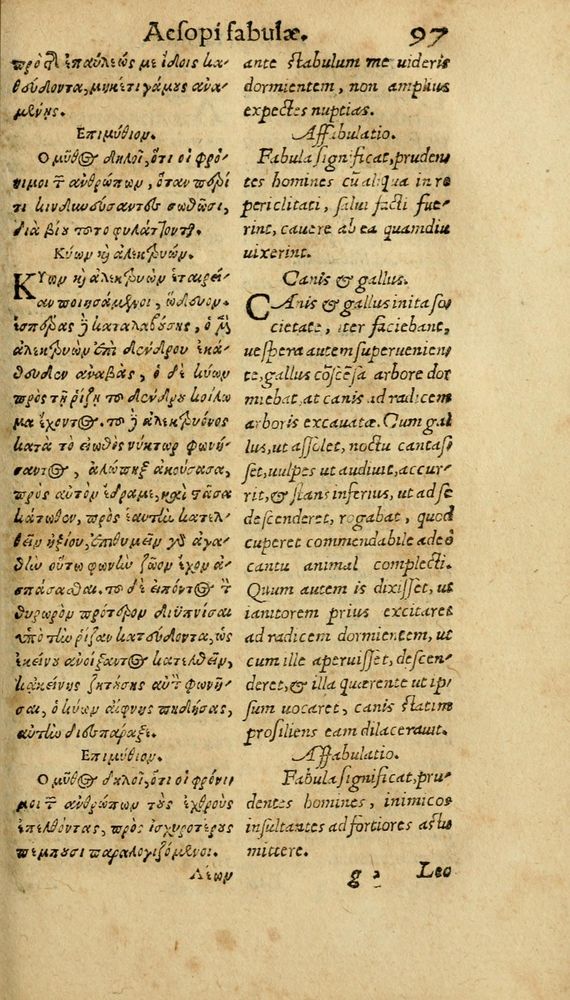 Aesopi fabulæ. 97
πρὸ τῆς ἐπαύλεως με ἴδοις κα-
θεύδοντα, μηκέτι γάμους ἀνα-
μένῃς.
Ἐπιμύθιον.
Ὁ μῦθος δηλοῖ, ὅτι οἱ φρό-
νιμοι τῶν ἀνθρώπων, ὅταν περί
τι κινδυνεύσαντες σωθῶσι,
διὰ βίου τοῦτο φυλάττονται.
Κύων καὶ ἀλεκτρυών.
Κύων καὶ ἀλεκτρυὼν ἑταιρεί-
αν ποιησάμενοι, ὥδευον.
ἑσπέρας δὲ καταλαβούσης, ὁ μὲν
ἀλεκτρυὼν ἐπὶ δένδρου ἐκά-
θευδεν ἀναβὰς, ὁ δὲ κύων
πρὸς τῇ ῥίζῃ τοῦ δένδρου κοίλω
μα ἔχοντος. τοῦ δὲ ἀλεκτρυόνος
κατὰ τὸ εἰωθὸς νύκτωρ φωνή-
σαντος, ἀλώπηξ ἀκούσασα,
πρὸς αὐτὸν ἔδραμε, καὶ στᾶσα
κάτωθεν, πρὸς ἑαυτὴν κατελ-
θεῖν ἠξίου, ἐπιθυμεῖν γὰρ ἀγα-
θὴν οὕτω φωνὴν ζῶον ἔχον ἀ-
σπάσασθαι. τοῦ δὲ εἰπόντος τὸν
θυρωρὸν πρότερον διϋπνίσαι
ὑπὸ τὴν ῥίζαν κατεύδοντα, ὡς
ἐκείνου ἀνοίξαντος κατελθεῖν,
κἀκείνης ζητούσης αὐτὸν φωνῆ-
σαι, ὁ κύων αἴφνης πηδήσας,
αὐτὴν διεσπάραξε.
Ἐπιμύθιον.
Ὁ μῦθος δηλοῖ, ὅτι οἱ φρόνι
μοι τῶν ἀνθρώπων τοὺς ἐχθροὺς
ἐπελθόντας, πρὸς ἰσχυροτέρους
πέμπουσι παραλογιζόμενοι.
Λέων
ante stabulum me uideris
dormientem, non amplius
expectes nuptias.
Affabulatio.
Fabula significat, pruden
tes homines cũ aliqua in re
periclitati, salui facti fue-
rint, cauere ab ea quamdiu
uixerint.
Canis & gallus.
Canis & gallus inita so-
cietate, iter faciebant,
uespera autem superuenien
te, gallus cõscẽsa arbore dor
miebat, at canis ad radicem
arboris excauatæ. Cum gal
lus, ut assolet, noctu cantas-
set, uulpes ut audiuit, accur-
rit, & stans inferius, ut ad se
descenderet, rogabat, quod
cuperet commendabile adeo
cantu animal complecti.
Quum autem is dixisset, ut
ianitorem prius excitaret
ad radicem dormientem, ut
cum ille aperuisset, descen-
deret, & illa quærente ut ip-
sum uocaret, canis statim
prosiliens eam dilacerauit.
Affabulatio.
Fabula significat, pru-
dentes homines, inimicos
insultantes ad fortiores astu
mittere.
g Leo